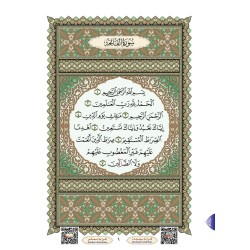 سورة الفاتحة
بسم الله الرحمن الرحيم ١
الحمد لله رب العالمين ٢
الرحمن الرحيم ٣ مالك يوم الدين ٤
إياك نعبد وإياك نستعين ٥ اهدنا
الصراط المستقيم ٦ صراط الذين أنعمت
عليهم غير المغضوب عليهم
ولا الضالين ٧
١